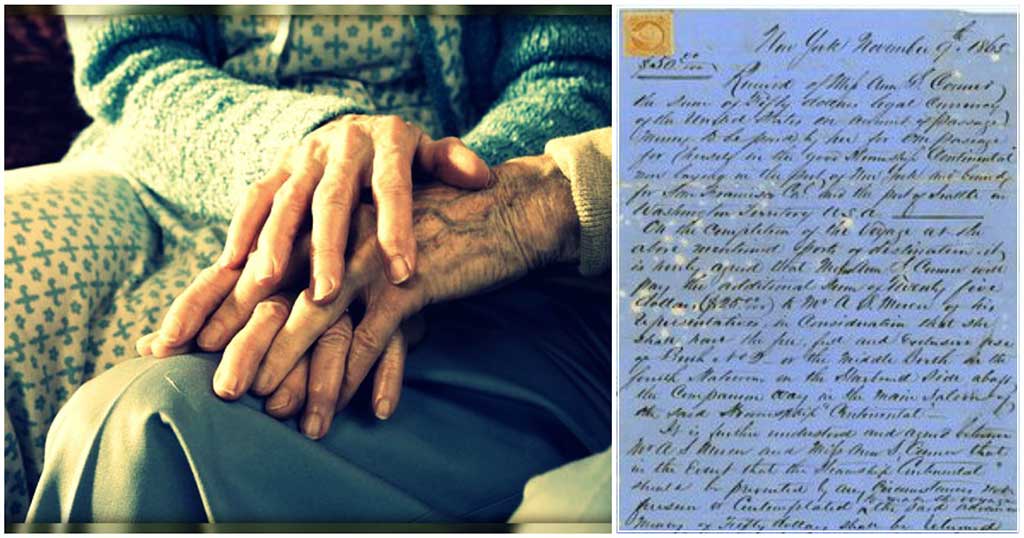 New York November 9th 1865
$50.00
Received of Miss Ann S. Conner
the sum of Fifty dollars legal Currency
of the United States on account of passage
Money to be paid by her for one passage
for herself in the good Steamship "Continental"
now laying in the port of New York and bound
for San Francisco Cal and the port of Seattle in
Washington Territory U.S.A.
On the Completion of the Voyage at the
above mentioned ports of destination it
is hereby agreed that Miss Ann S. Conner will
pay the additional Sum of Twenty five
dollars ($25.00) to Mr A S. Mercer or his
representatives, in Consideration that she
shall have the free, full and exclusive use
of Berth No D or the middle Berth in the
fourth Stateroom on the Starboard Side abaft
the Companion way in the main Saloon of
the said Steamship "Continental"
It is further understood and agreed between
Mr A S Mercer and Miss Ann S. Conner that
in the Event that the Steamship "Continental"
should be prevented by any Circumstances not
foreseen or Contemplated to make the voyage the said advance
Money of Fifty dollars shall be returned